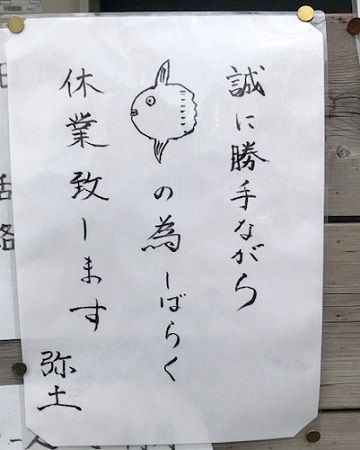 誠に勝手ながら
の為しばらく
休業致します
弥土